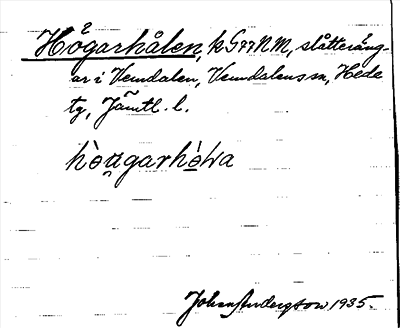 Högarhålen, k G77NM, slåtteräng-
ar i Vemdalen, Vemdalens sn, Hede
tg, Jämtl. l.
Johan Anderson 1935.